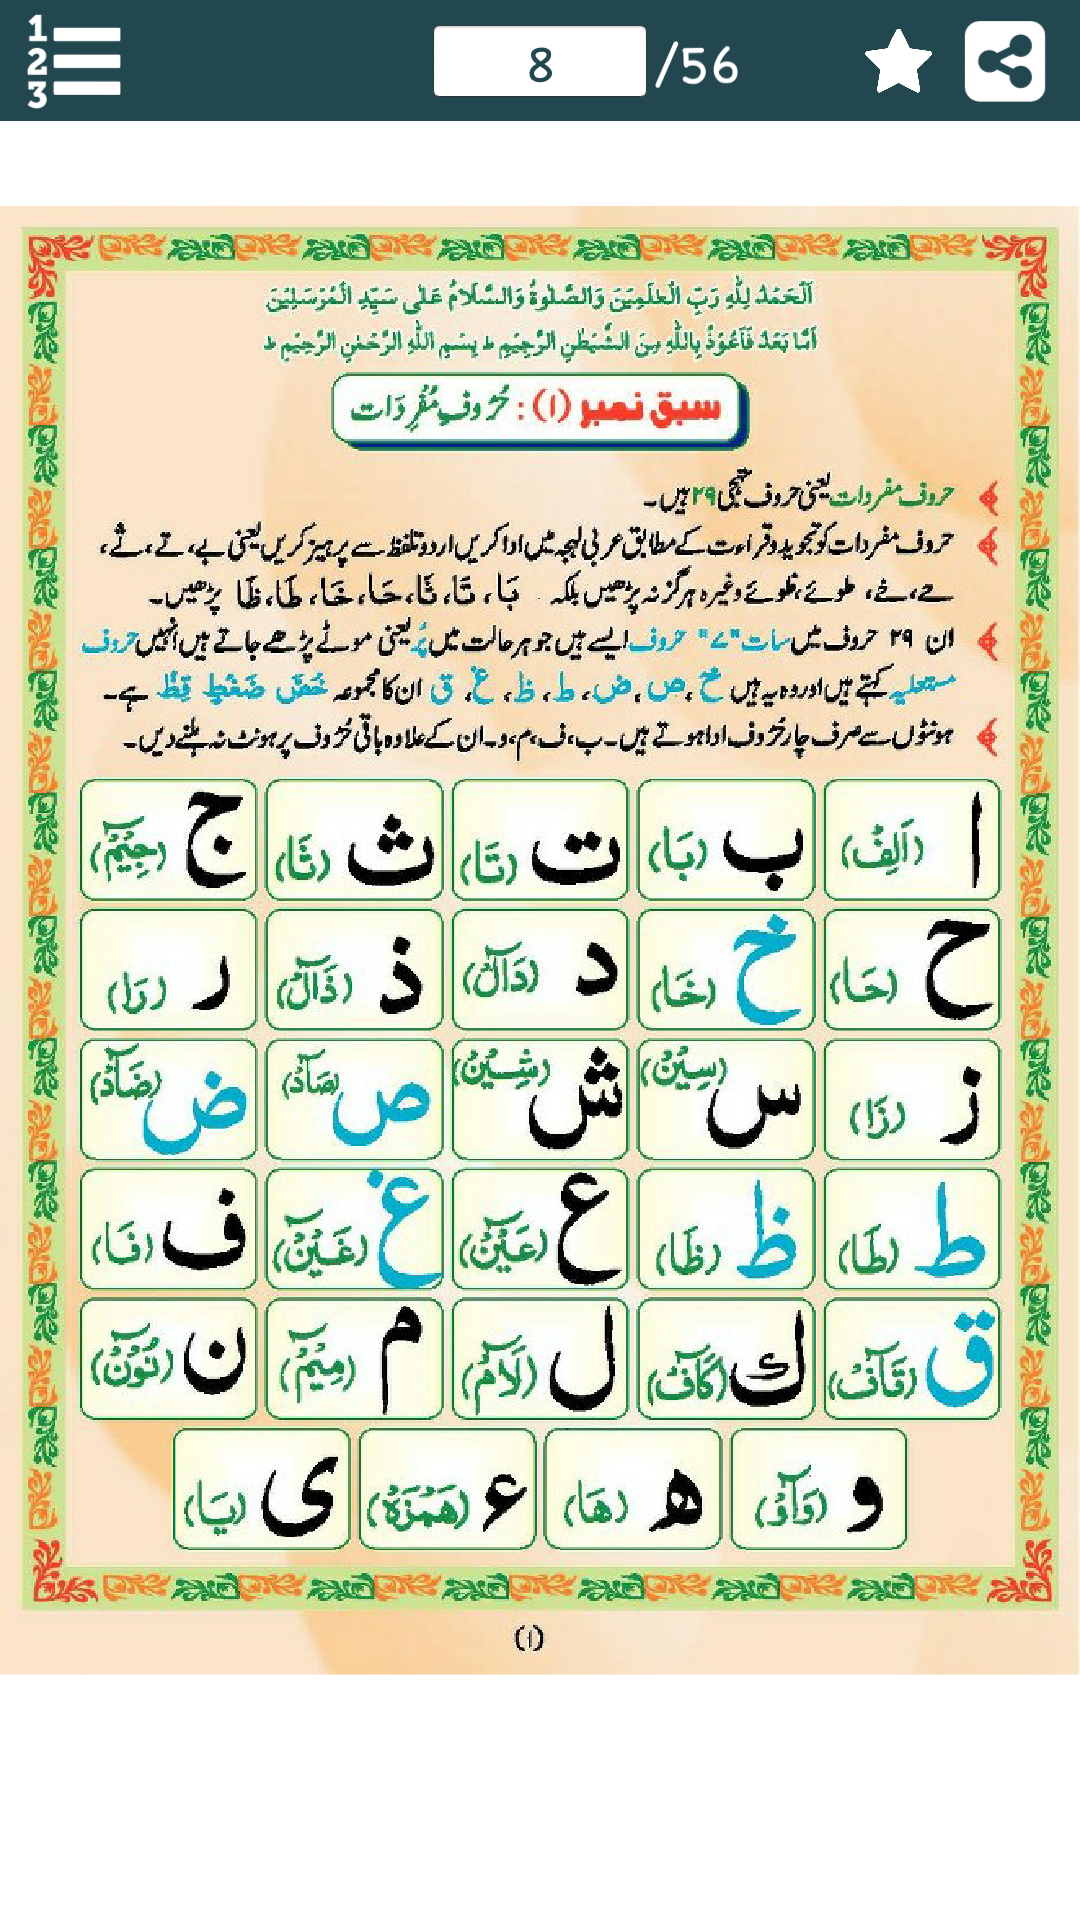 1
2
3
8 /56
اَلْحَمْدُ لِلّٰهِ رَبِّ الْعٰلَمِيْنَ وَالصَّلٰوةُ وَالسَّلَامُ عَلٰى سَيِّدِ الْمُرْسَلِيْنَ
اَمَّا بَعْدُ فَاَعُوْذُ بِاللّٰهِ مِنَ الشَّيْطٰنِ الرَّجِيْمِ ط بِسْمِ اللّٰهِ الرَّحْمٰنِ الرَّحِيْمِ ط
سبق نمبر (۱) : حُرُوفِ مُفْرِدَات
حروف مفردات یعنی حروف تہجی ۲۹ ہیں۔
حروف مفردات کو تجوید و قراءت کے مطابق عربی لہجہ میں ادا کریں اردو تلفظ سے پرہیز کریں یعنی بے، تے، ثے،
حے، خے، طوئے، ظوئے وغیرہ ہرگز نہ پڑھیں بلکہ بَا، تَا، ثَا، حَا، خَا، طَا، ظَا پڑھیں۔
ان ۲۹ حروف میں سات "۷" حروف ایسے ہیں جو ہر حالت میں پُر یعنی موٹے پڑھے جاتے ہیں انہیں حروف
مستعلیہ کہتے ہیں اور وہ یہ ہیں خ، ص، ض، ط، ظ، غ، ق ان کا مجموعہ خُصَّ ضَغْطٍ قِظْ ہے۔
ہونٹوں سے صرف چار حُرُوف ادا ہوتے ہیں۔ ب، ف، م، و۔ ان کے علاوہ باقی حُرُوف پر ہونٹ نہ ہلنے دیں۔
ا (اَلِفْ) ب (بَا) ت (تَا) ث (ثَا) ج (جِيْمْ)
ح (حَا) خ (خَا) د (دَالْ) ذ (ذَالْ) ر (رَا)
ز (زَا) س (سِيْنْ) ش (شِيْنْ) ص (صَادْ) ض (ضَادْ)
ط (طَا) ظ (ظَا) ع (عَيْنْ) غ (غَيْنْ) ف (فَا)
ق (قَافْ) ك (كَافْ) ل (لَامْ) م (مِيْمْ) ن (نُوْنْ)
و (وَاوْ) ه (هَا) ء (هَمْزَهْ) ى (يَا)
(۱)